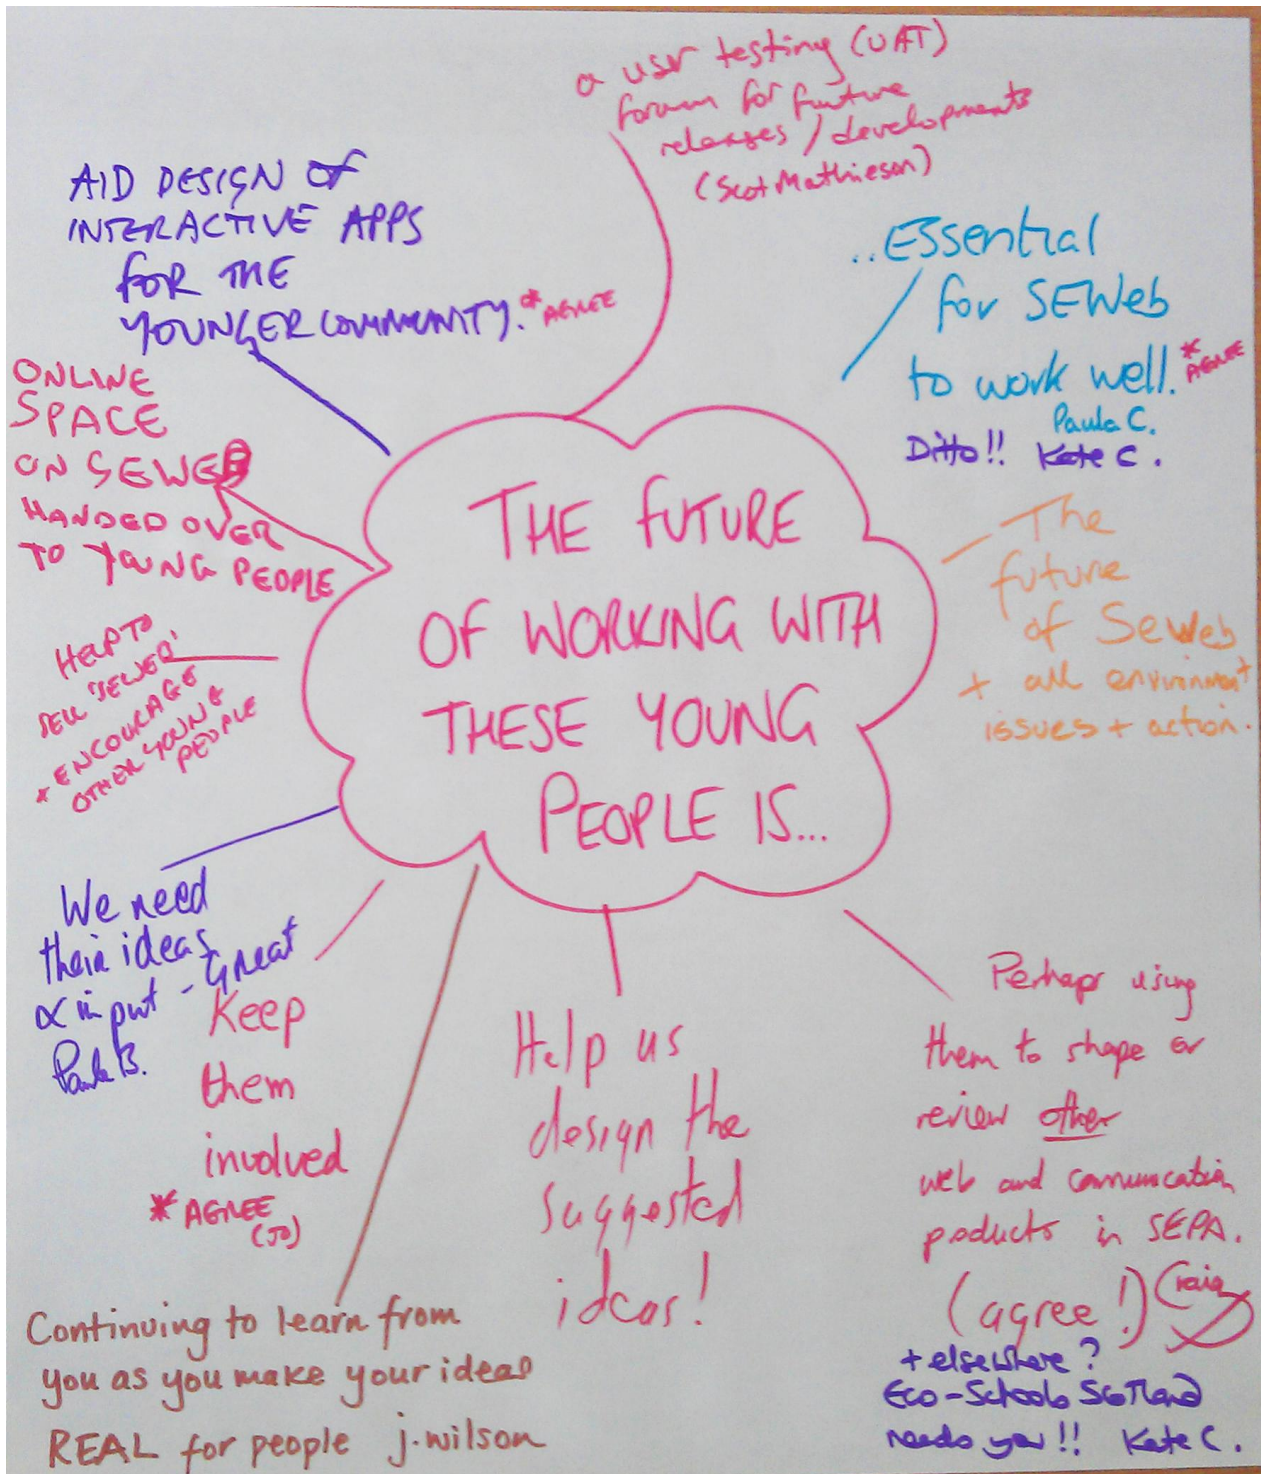 a user testing (UAT)
forum for future
releases / developments
(Scot Mathieson)
AID DESIGN OF
INTERACTIVE APPS
FOR THE
YOUNGER COMMUNITY. * AGREE
..Essential
for SEWeb
to work well. * AGREE
Paula C.
Ditto!! Kate C.
ONLINE
SPACE
ON SEWEB
HANDED OVER
TO YOUNG PEOPLE
THE FUTURE
OF WORKING WITH
THESE YOUNG
PEOPLE IS...
The
future
of SeWeb
+ all environment
issues + action.
HELP TO
SELL 'SEWEB'
+ ENCOURAGE
OTHER YOUNG
PEOPLE
We need
their ideas
& input - Great
Paula B.
Keep
them
involved
* AGREE
(JO)
Help us
design the
suggested
ideas!
Perhaps using
them to shape or
review other
web and communication
products in SEPA.
(agree!) Craig
+ elsewhere?
Eco-Schools Scotland
needs you!! Kate C.
Continuing to learn from
you as you make your ideas
REAL for people j.wilson